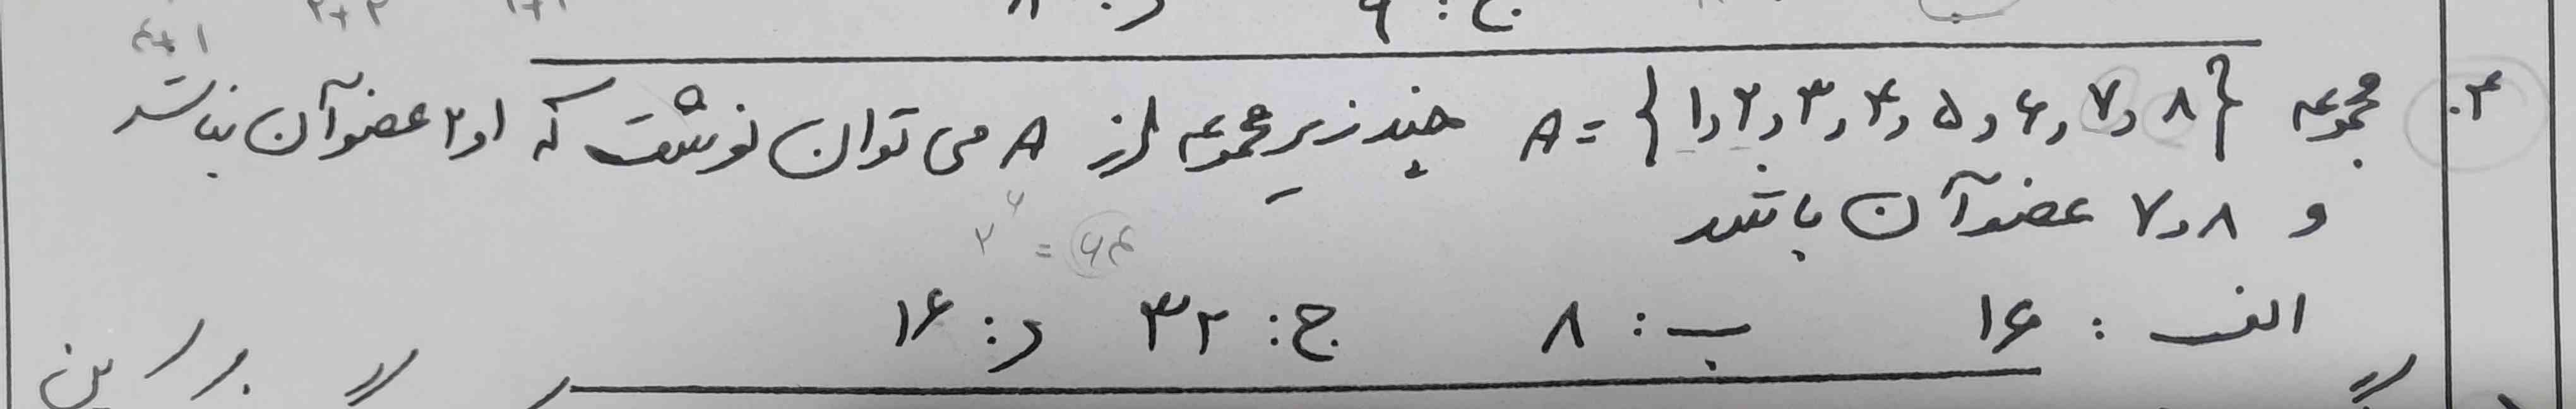 ج: ۹
۴. مجموعه A = {۱,۲,۳,۴,۵,۶,۷,۸} چند زیر مجموعه از A می توان نوشت که ۱و۲ عضو آن نباشد
و ۷،۸ عضو آن باشد
۲^۶ = ۶۴
الف: ۱۶ ب: ۸ ج: ۳۲ د: ۱۶